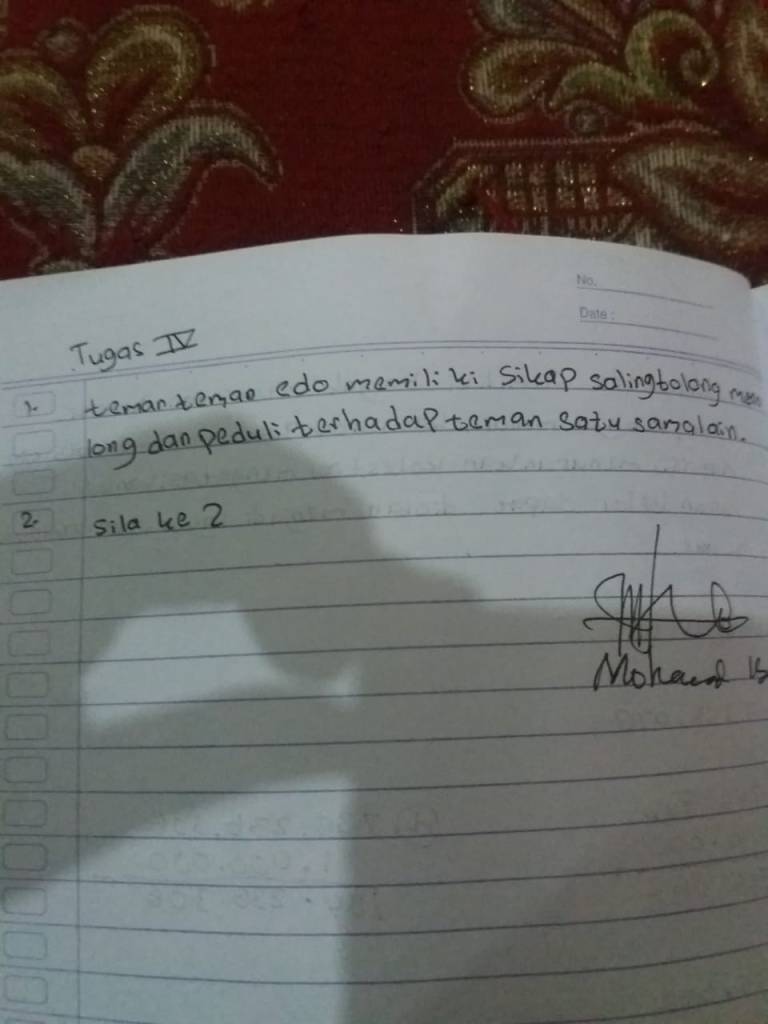 No.
Date :
Tugas IV
1. teman teman edo memiliki sikap salingtolong men
long dan peduli terhadap teman satu samalain.
2. Sila ke 2